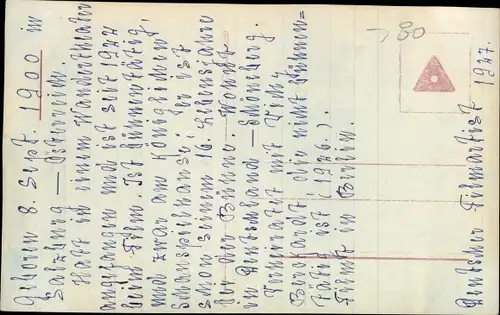 Geboren 8. Sept. 1900 in
Salzburg — Österreich.
Hatt in einem Wandertheater
angefangen und ist seit 1922
beim Film. Ist Bühnentätig,
und zwar am Königlichen
Schauspielhause. Er ist
schon seinem 16. Lebensjahre
bei der Bühne. Wohnt
in Deutschland — Schöneberg.
Verheiratet mit
Burghardt die nicht Bühnen=
tätig ist (1926.).
Filmt in Berlin.
Deutscher Filmartist 1927.
80